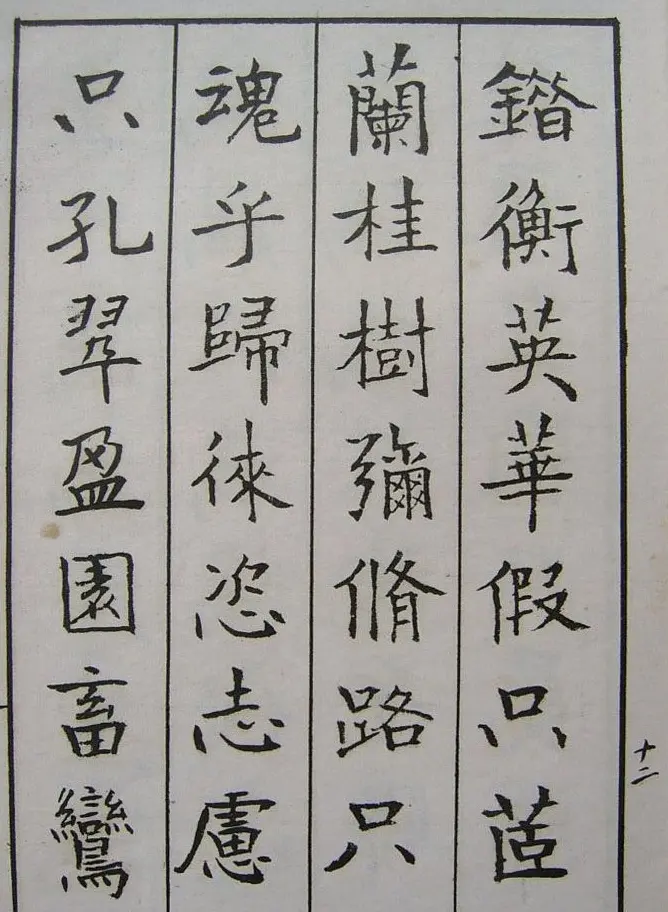 錯衡英華假只茝
蘭桂樹彌脩路只
魂乎歸徠恣志慮
只孔翠盈園畜鸞
十二